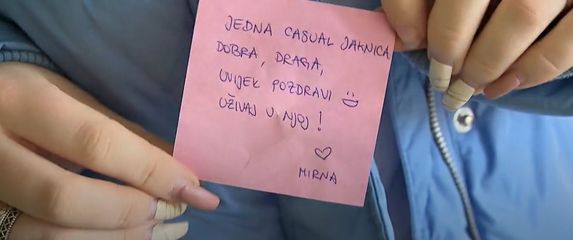 JEDNA CASUAL JAKNICA
DOBRA, DRAGA,
UVIJEK POZDRAVI
UŽIVAJ U NJOJ!
MIRNA